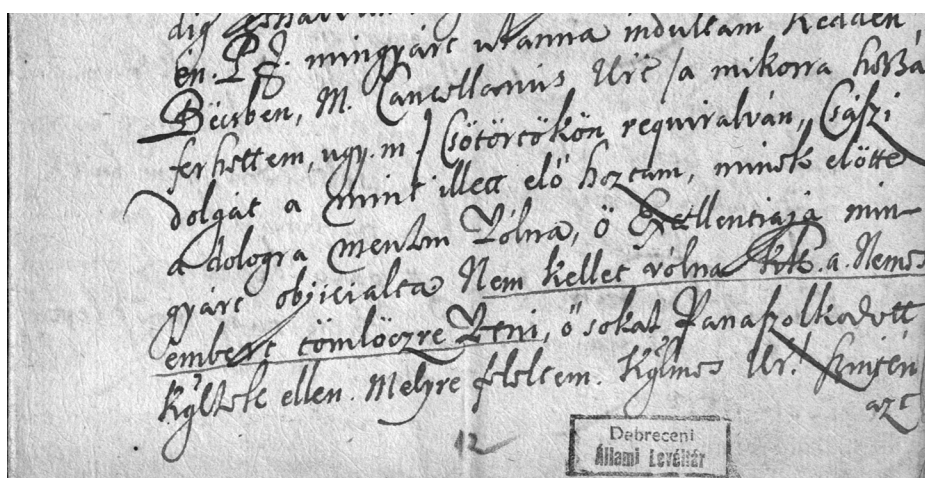 dig
én. P. J. mingyárt utánna indultam Kedden,
Bécsben, M. Cancellarius Urt /a mikorra hozzá
ferhettem, ugy.m/ Csötörtökön requiralván, Császi
dolgát a mint illett elő hoztam, minek előtte
a dologra mentem Vólna, ő Excellentiaja min-
gyárt objicialta Nem kellet vólna kk. a. Nemes
embert tömlöczre Venni, ő sokat Panaszolkodott
Kyltek ellen. Melyre feleltem. Kylmes Ur! szintén
azt
12
Debreceni
Állami Levéltár